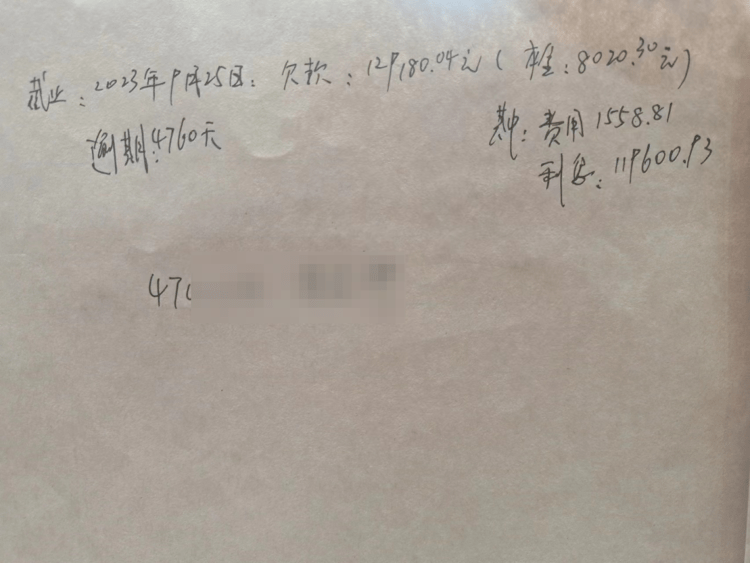 截止：2023年9月25日：欠款：129180.04元（本金：8020.30元）
逾期：4760天
其中：费用 1558.81
利息：119600.93
470